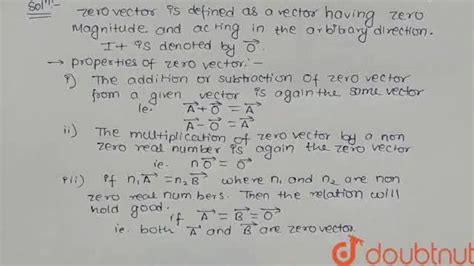 Sol":-
zero vector is defined as a vector having zero
Magnitude and acting in the arbitrary direction.
It is denoted by O⃗.
→ properties of zero vector:-
i) The addition or subtraction of zero vector
from a given vector is again the same vector
ie. A⃗+O⃗ = A⃗
A⃗-O⃗ = A⃗
ii) The multiplication of zero vector by a non
zero real number is again the zero vector
ie. nO⃗ = O⃗
iii) if n₁A⃗ = n₂B⃗ where n₁ and n₂ are non
zero real numbers. Then the relation will
hold good.
if A⃗ = B⃗ = O⃗
ie. both A⃗ and B⃗ are zero vector
doubtnut